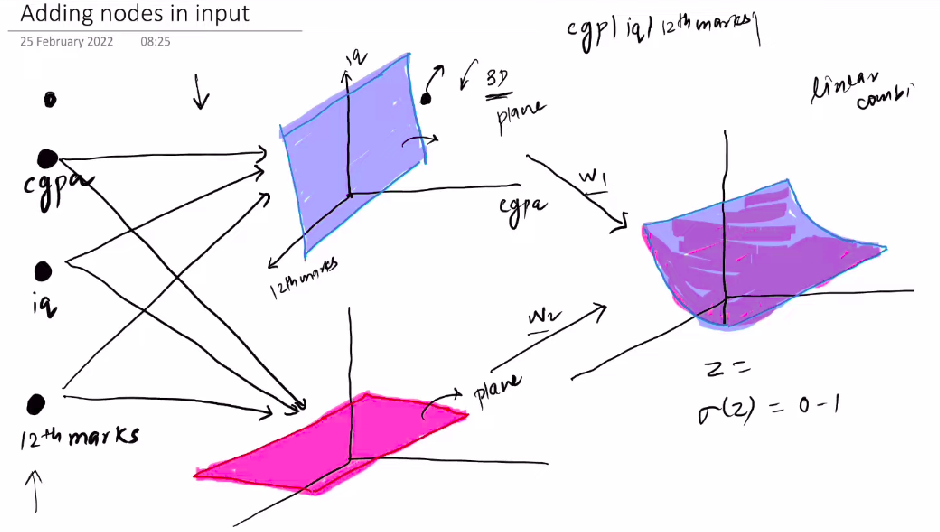 Adding nodes in input
25 February 2022 08:25
cgp| iq| 12th marks|
iq
3D
plane
linear
combi
cgpa
w1
cgpa
12th marks
iq
w2
plane
z =
σ(z) = 0-1
12th marks